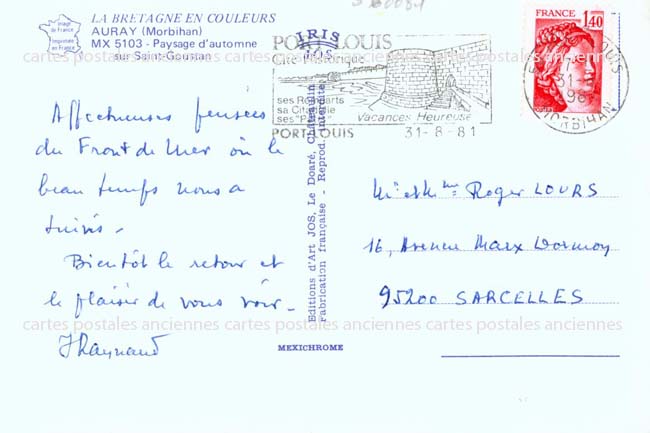 LA BRETAGNE EN COULEURS
AURAY (Morbihan)
MX 5103 - Paysage d'automne
sur Saint-Goustan
Image de France
Imprimée en France
Affectueuses pensées
du Front de Mer où le
beau temps nous a
suivis.
Bientôt le retour et
le plaisir de vous voir.
IRIS
JOS
Editions d'Art JOS, Le Doaré, Châteaulin
Fabrication française - Reprod. interdite
MEXICHROME
PORT-LOUIS
Cité Historique
ses Remparts
sa Citadelle
ses
Vacances Heureuse
PORT-LOUIS 31-8-81
FRANCE
1,40
31-8
MORBIHAN
Mr et Mme Roger LOURS
16, Avenue Marx Dormoy
95200 SARCELLES
cartes postales anciennes cartes postales anciennes cartes postales anciennes
cartes postales anciennes cartes postales anciennes cartes postales anciennes